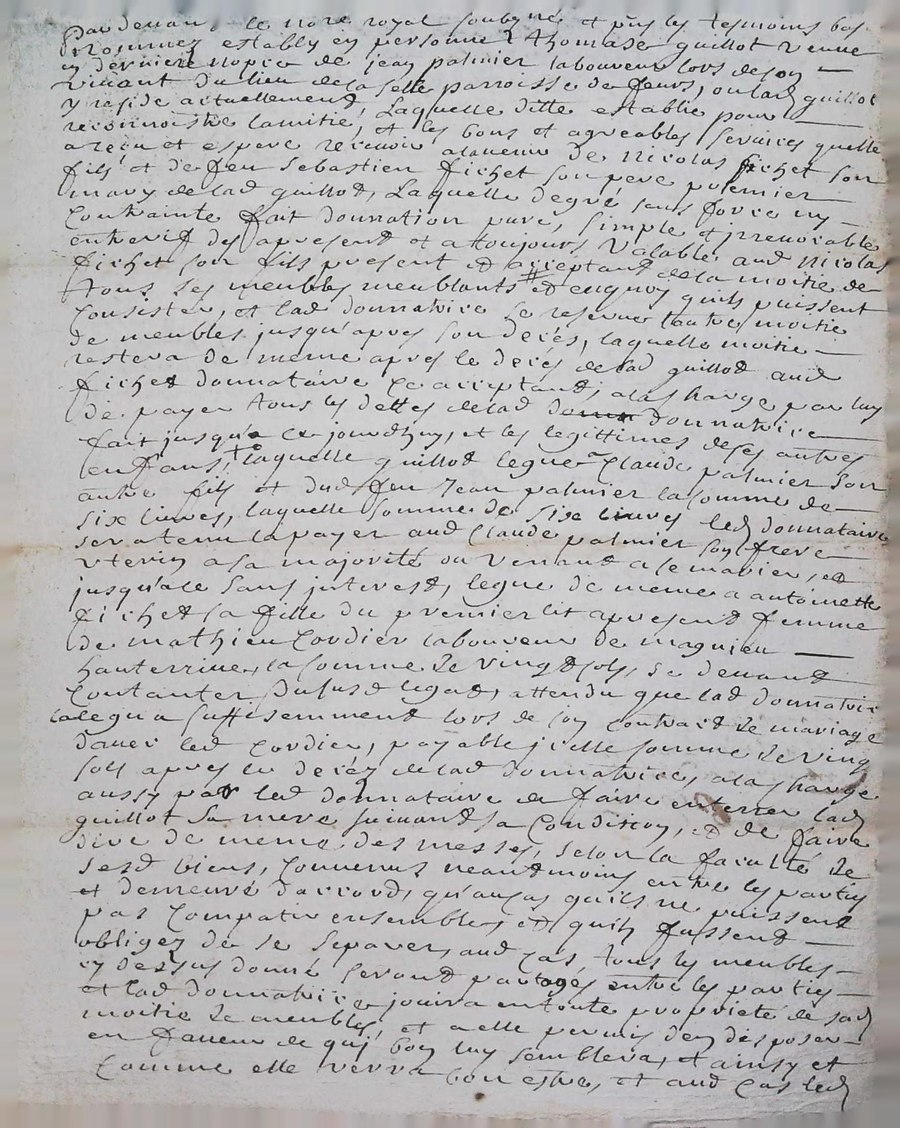 Pardevant le nore royal soubsné et pnts les tesmoins bas
nommez establÿ en personne thomase guillot veuve
en derniere nopce de jean palmier laboureur lors de son
vivant du lieu de la selle parroisse de feurs, ou lad guillot
y reside actuellement, Laquelle ditte establie pour
reconnoistre lamitié, et les bons et agreables services quelle
a reçu et espere recevoir alavenir de nicolas fichet son
fils et de feu sebastien fichet son pere premier
mary de lad guillot, Laquelle degré sans force ny
Contrainte fait donnation pure, simple et jrrevocable
entrevif des apresent et a toujours valable, aud nicolas
fichet son fils present et acceptant de la moitié de
tous ses meubles meublants et enquoy quils puissent
Consister, et lad donnatrice se reserve lautre moitié
de meubles jusqu'apres son decés, laquelle moitié
restera de meme apres le decés de lad guillot aud
fichet donnataire ce acceptant, ala charge par luy
de payer tous les dettes de lad donnatrice
fait jusqu'a ce jourdhuy, et les legittimes de ses autres
enfans, laquelle guillot legue a Claude palmier son
autre fils et dud feu jean palmier la somme de
six livres, laquelle somme de six livres led donnataire
sera tenu la payer aud Claude palmier son frere
uterin a sa majorité ou venant a se marier, et
jusqu'ale sans jnterest, legue de meme a antoinette
fichet sa fille du premier lit apresent femme
de mathieu Cordier laboureur de magnieu
hauterrive, la somme de vingt sols, se devant
Contanter dusust legat, attendu que lad donnatrice
la legua suffisemment lors de son contract de mariage
d'avec led Cordier, payable jcelle somme de ving
sols apres le decéz de lad donnatrice, ala charge
aussy par led donnataire de faire enterrer lad
guillot sa mere suivant sa Condition, et de faire
dire de meme des messes, selon la faculté de
sesd biens, Convenus neantmoins entre les parties
et demeuré d'accord, qu'aucas quils ne puissent
pas Compatir ensembles, et quils fussent
obligez de se separer, aud cas, tous les meubles
cy dessus donné seront partagés entre les parties
et lad donnatrice jouira entoute proprieté de sad
moitié de meubles, et a elle permis den disposer
en faveur de qui bon luy semblera, et ainsy et
Comme elle verra bon estre, et aud cas led